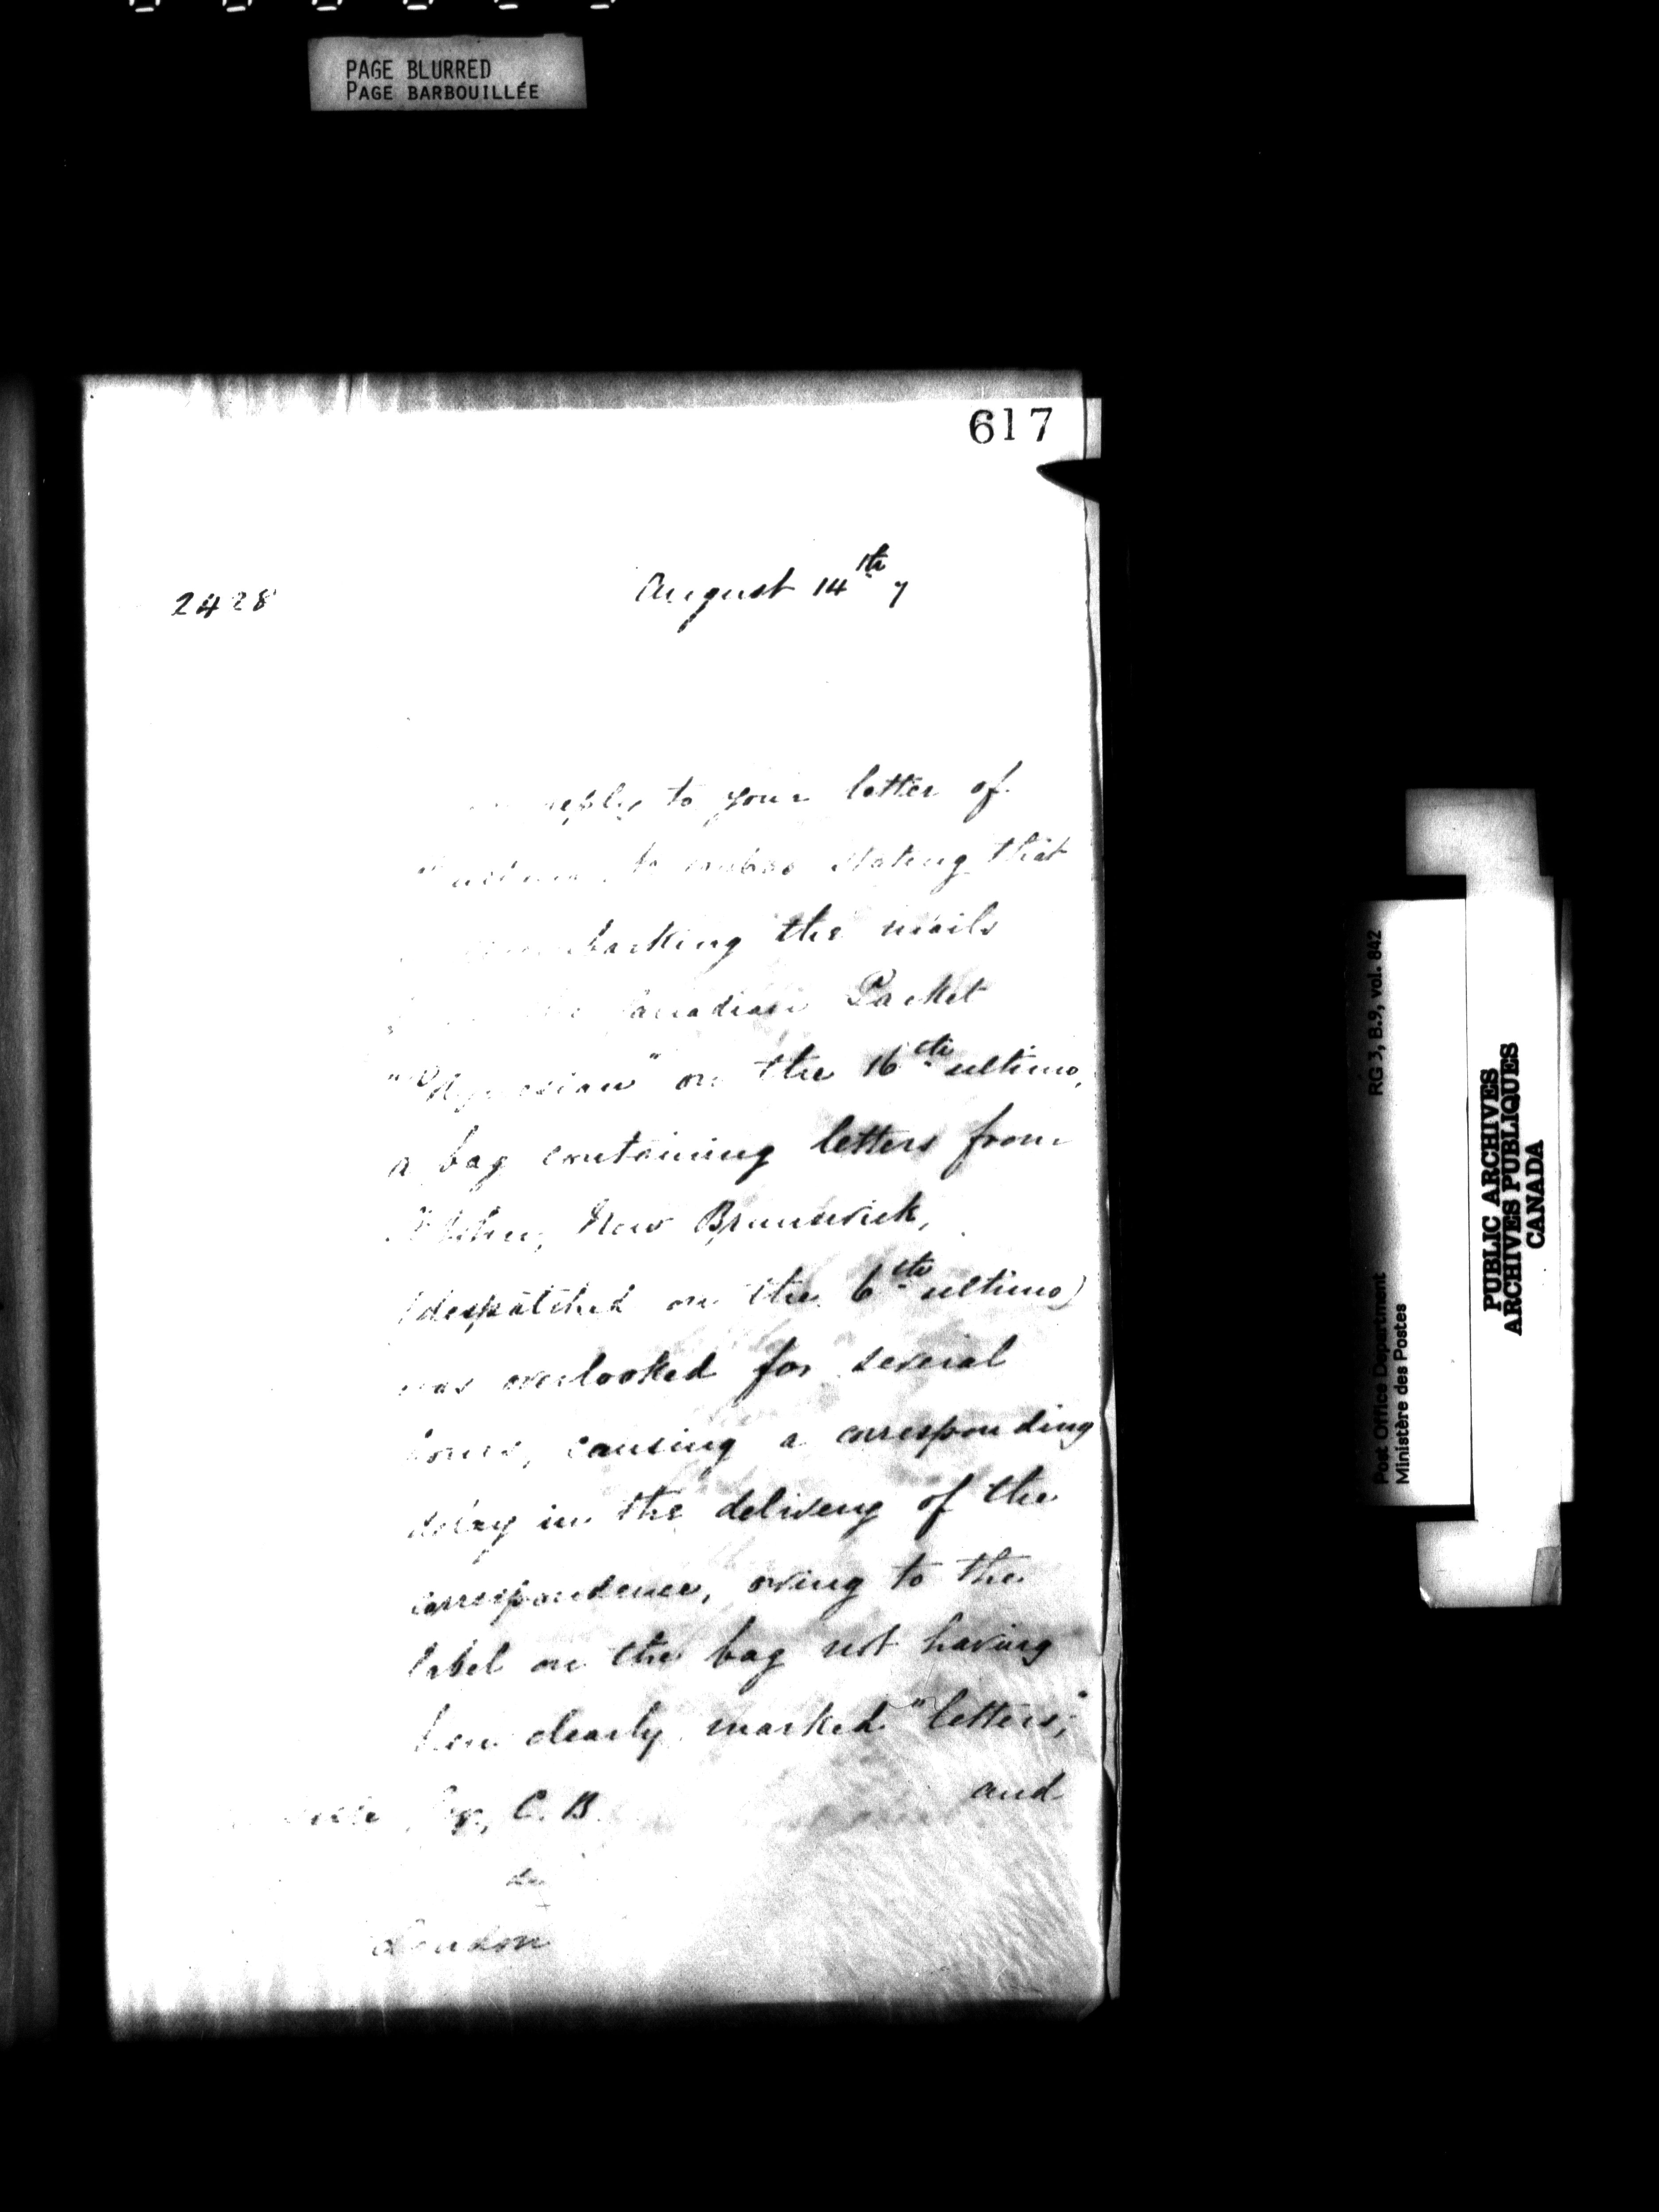 PAGE BLURRED
PAGE BARBOUILLÉE
617
2428
August 14th 7
reply to your letter of
stating that
the mails
Canadian Packet
on the 16th ultimo,
a bag containing letters from
New Brunswick,
(despatched on the 6th ultimo)
was overlooked for several
hours, causing a corresponding
delay in the delivery of the
correspondence, owing to the
label on the bag not having
been clearly marked "letters,"
and
Esq, C. B.
London
RG 3, B.9, vol. 842
Post Office Department
Ministère des Postes
PUBLIC ARCHIVES
ARCHIVES PUBLIQUES
CANADA